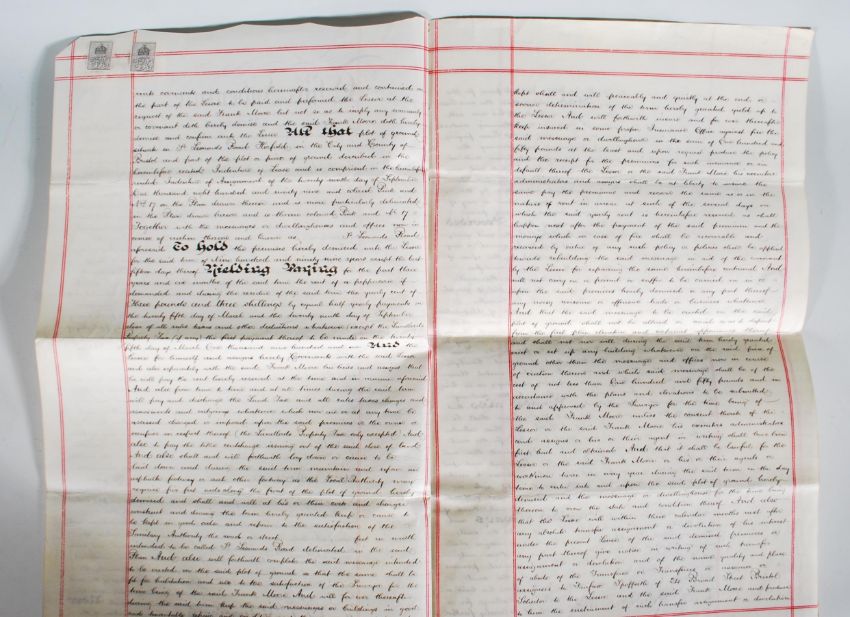 rents covenants and conditions hereinafter reserved and contained on
the part of the Lessee to be paid and performed the Lessor at the
request of the said Frank Moore but not so as to imply any warranty
or covenant doth hereby demise and the said Frank Moore doth hereby
demise and confirm unto the Lessee All that plot of ground
situate in St Leonards Road Horfield in the City and County of
Bristol and part of the plot or piece of ground described in the
hereinbefore recited Indenture of Lease and is comprised in the hereinbefore
recited Indenture of Assignment of the twenty ninth day of September
One thousand eight hundred and ninety nine and colored Pink and
No 17 on the Plan drawn thereon and is more particularly delineated
in the Plan drawn hereon and is thereon colored Pink and No 17
Together with the messuage or dwellinghouse and offices now in
course of erection thereon and known as St Leonards Road
aforesaid To Hold the premises hereby demised unto the Lessee
for the said term of Nine hundred and ninety nine years except the last
fifteen days thereof Yielding Paying for the first three
years and six months of the said term the rent of a peppercorn if
demanded and during the residue of the said term the yearly rent of
Three pounds and three shillings by equal half yearly payments on
the twenty fifth day of March and the twenty ninth day of September
clear of all rates taxes and other deductions whatsoever (except the Landlords
Property Tax if any) the first payment thereof to be made on the twenty
fifth day of March One thousand nine hundred and And the
Lessee for himself and assigns hereby Covenants with the said Lessor
and also separately with the said Frank Moore his heirs and assigns that
he will pay the rent hereby reserved at the times and in manner aforesaid
And also from time to time and at all times during the said term
will pay and discharge the Land Tax and all rates taxes charges and
assessments and outgoings whatsoever which now are or at any time be
assessed charged or imposed upon the said premises or the owner or
occupier in respect thereof (the Landlords Property Tax only excepted) And
also to pay the tithe rentcharge issuing out of the said close of land
And also shall and will forthwith lay down or cause to be
laid down and during the said term maintain and repair an
asphalte footway or such other footway as the Local Authority may
require five feet wide along the front of the plot of ground hereby
demised and shall and will at his or their costs and charges
construct and during the term hereby granted keep or cause to
be kept in good order and repair to the satisfaction of the
Sanitary Authority the road or street feet in width
intended to be called St Leonards Road delineated in the said
Plan And also will forthwith complete the said messuage intended
to be erected on the said plot of ground so that the same shall be
fit for habitation and use to the satisfaction of the Surveyor for the
time being of the said Frank Moore And will for ever thereafter
during the said term keep the said messuages or buildings in good
kept shall and will peaceably and quietly at the end or
sooner determination of the term hereby granted yield up to
the Lessor And will forthwith insure and for ever thereafter
keep insured in some proper Insurance Office against fire the
said messuage or dwellinghouse in the sum of One hundred and
fifty pounds at the least and upon request produce the policy
and the receipt for the premiums for such insurance or in
default thereof the Lessor or the said Frank Moore his executors
administrators and assigns shall be at liberty to insure the
same pay the premiums and recover the same as or in the
nature of rent in arrear at such of the several days on
which the said yearly rent is hereinbefore reserved as shall
happen next after the payment of the said premium and the
moneys which in case of fire shall be receivable and
received by virtue of any such policy or policies shall be applied
towards rebuilding the said messuage in aid of the covenant
by the Lessee for repairing the same hereinbefore contained And
will not carry on or permit or suffer to be carried on in or
upon the said premises hereby demised or any part thereof
any noisy noisome or offensive trade or business whatsoever
And that the said messuage to be erected on the said
plot of ground shall not be altered or made
shall not nor will during the said term hereby granted
erect or set up any building whatsoever on the said piece of
ground other than the messuage and offices now in course
of erection thereon and which said messuage shall be of the
cost of not less than One hundred and fifty pounds and in
accordance with the plans and elevations to be submitted
to and approved by the Surveyor for the time being of
the said Frank Moore unless the consent thereto of the
Lessor or the said Frank Moore his executors administrators
and assigns or his or their agent in writing shall have been
first had and obtained And that it shall be lawful for the
Lessor or the said Frank Moore or his or their agents or
workmen twice in every year during the said term in the day
time to enter into and upon the said plot of ground hereby
demised and the messuage or dwellinghouse for the time being
thereon to view the state and condition thereof And also
that the Lessee will within three calendar months next after
any absolute transfer assignment or devolution of his interest
under the present lease of the said demised premises or
any part thereof give notice in writing of such transfer
assignment or devolution and of the name quality and place
of abode of the Transferee or Transferees or assignee or
assignees to of Broad Street Bristol
Solicitor to the Lessor and the said Frank Moore and produce
to him the instrument of such transfer assignment or devolution